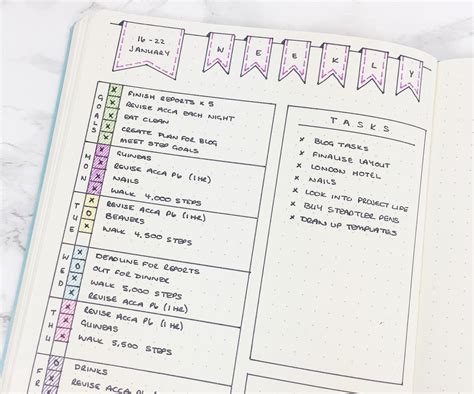 16 - 22
JANUARY
WEEKLY
GOALS
x FINISH REPORTS x 5
x REVISE ACCA EACH NIGHT
x EAT CLEAN
x CREATE PLAN FOR BLOG
x MEET STEP GOALS
MON
x GUINEAS
x REVISE ACCA P6 (1 HR)
x NAILS
x WALK 4,000 STEPS
TUE
x REVISE ACCA P6 (1 HR)
o BEAVERS
x WALK 4,500 STEPS
WED
x DEADLINE FOR REPORTS
o OUT FOR DINNER
x WALK 5,000 STEPS
x REVISE ACCA P6 (1 HR)
THU
x REVISE ACCA P6 (1 HR)
x GUINEAS
x WALK 5,500 STEPS
FR
o DRINKS
REVISE ACCA P6 (1 HR)
TASKS
x BLOG TASKS
x FINALISE LAYOUT
x LONDON HOTEL
x NAILS
x LOOK INTO PROJECT LIFE
x BUY STAEDTLER PENS
x DRAW UP TEMPLATES